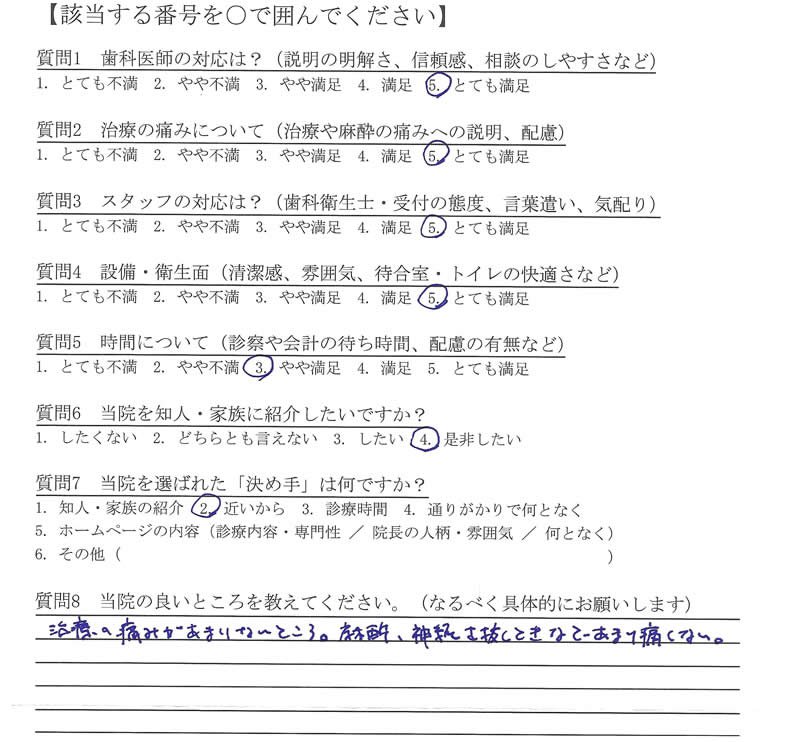 【該当する番号を○で囲んでください】
質問1　歯科医師の対応は？（説明の明解さ、信頼感、相談のしやすさなど）
1. とても不満　2. やや不満　3. やや満足　4. 満足　5. とても満足
質問2　治療の痛みについて（治療や麻酔の痛みへの説明、配慮）
1. とても不満　2. やや不満　3. やや満足　4. 満足　5. とても満足
質問3　スタッフの対応は？（歯科衛生士・受付の態度、言葉遣い、気配り）
1. とても不満　2. やや不満　3. やや満足　4. 満足　5. とても満足
質問4　設備・衛生面（清潔感、雰囲気、待合室・トイレの快適さなど）
1. とても不満　2. やや不満　3. やや満足　4. 満足　5. とても満足
質問5　時間について（診察や会計の待ち時間、配慮の有無など）
1. とても不満　2. やや不満　3. やや満足　4. 満足　5. とても満足
質問6　当院を知人・家族に紹介したいですか？
1. したくない　2. どちらとも言えない　3. したい　4. 是非したい
質問7　当院を選ばれた「決め手」は何ですか？
1. 知人・家族の紹介　2. 近いから　3. 診療時間　4. 通りがかりで何となく
5. ホームページの内容（診療内容・専門性 ／ 院長の人柄・雰囲気 ／ 何となく）
6. その他（　　　　　　　　　　）
質問8　当院の良いところを教えてください。（なるべく具体的にお願いします）
治療の痛みがあまりないところ。麻酔、神経を抜くときなどあまり痛くない。